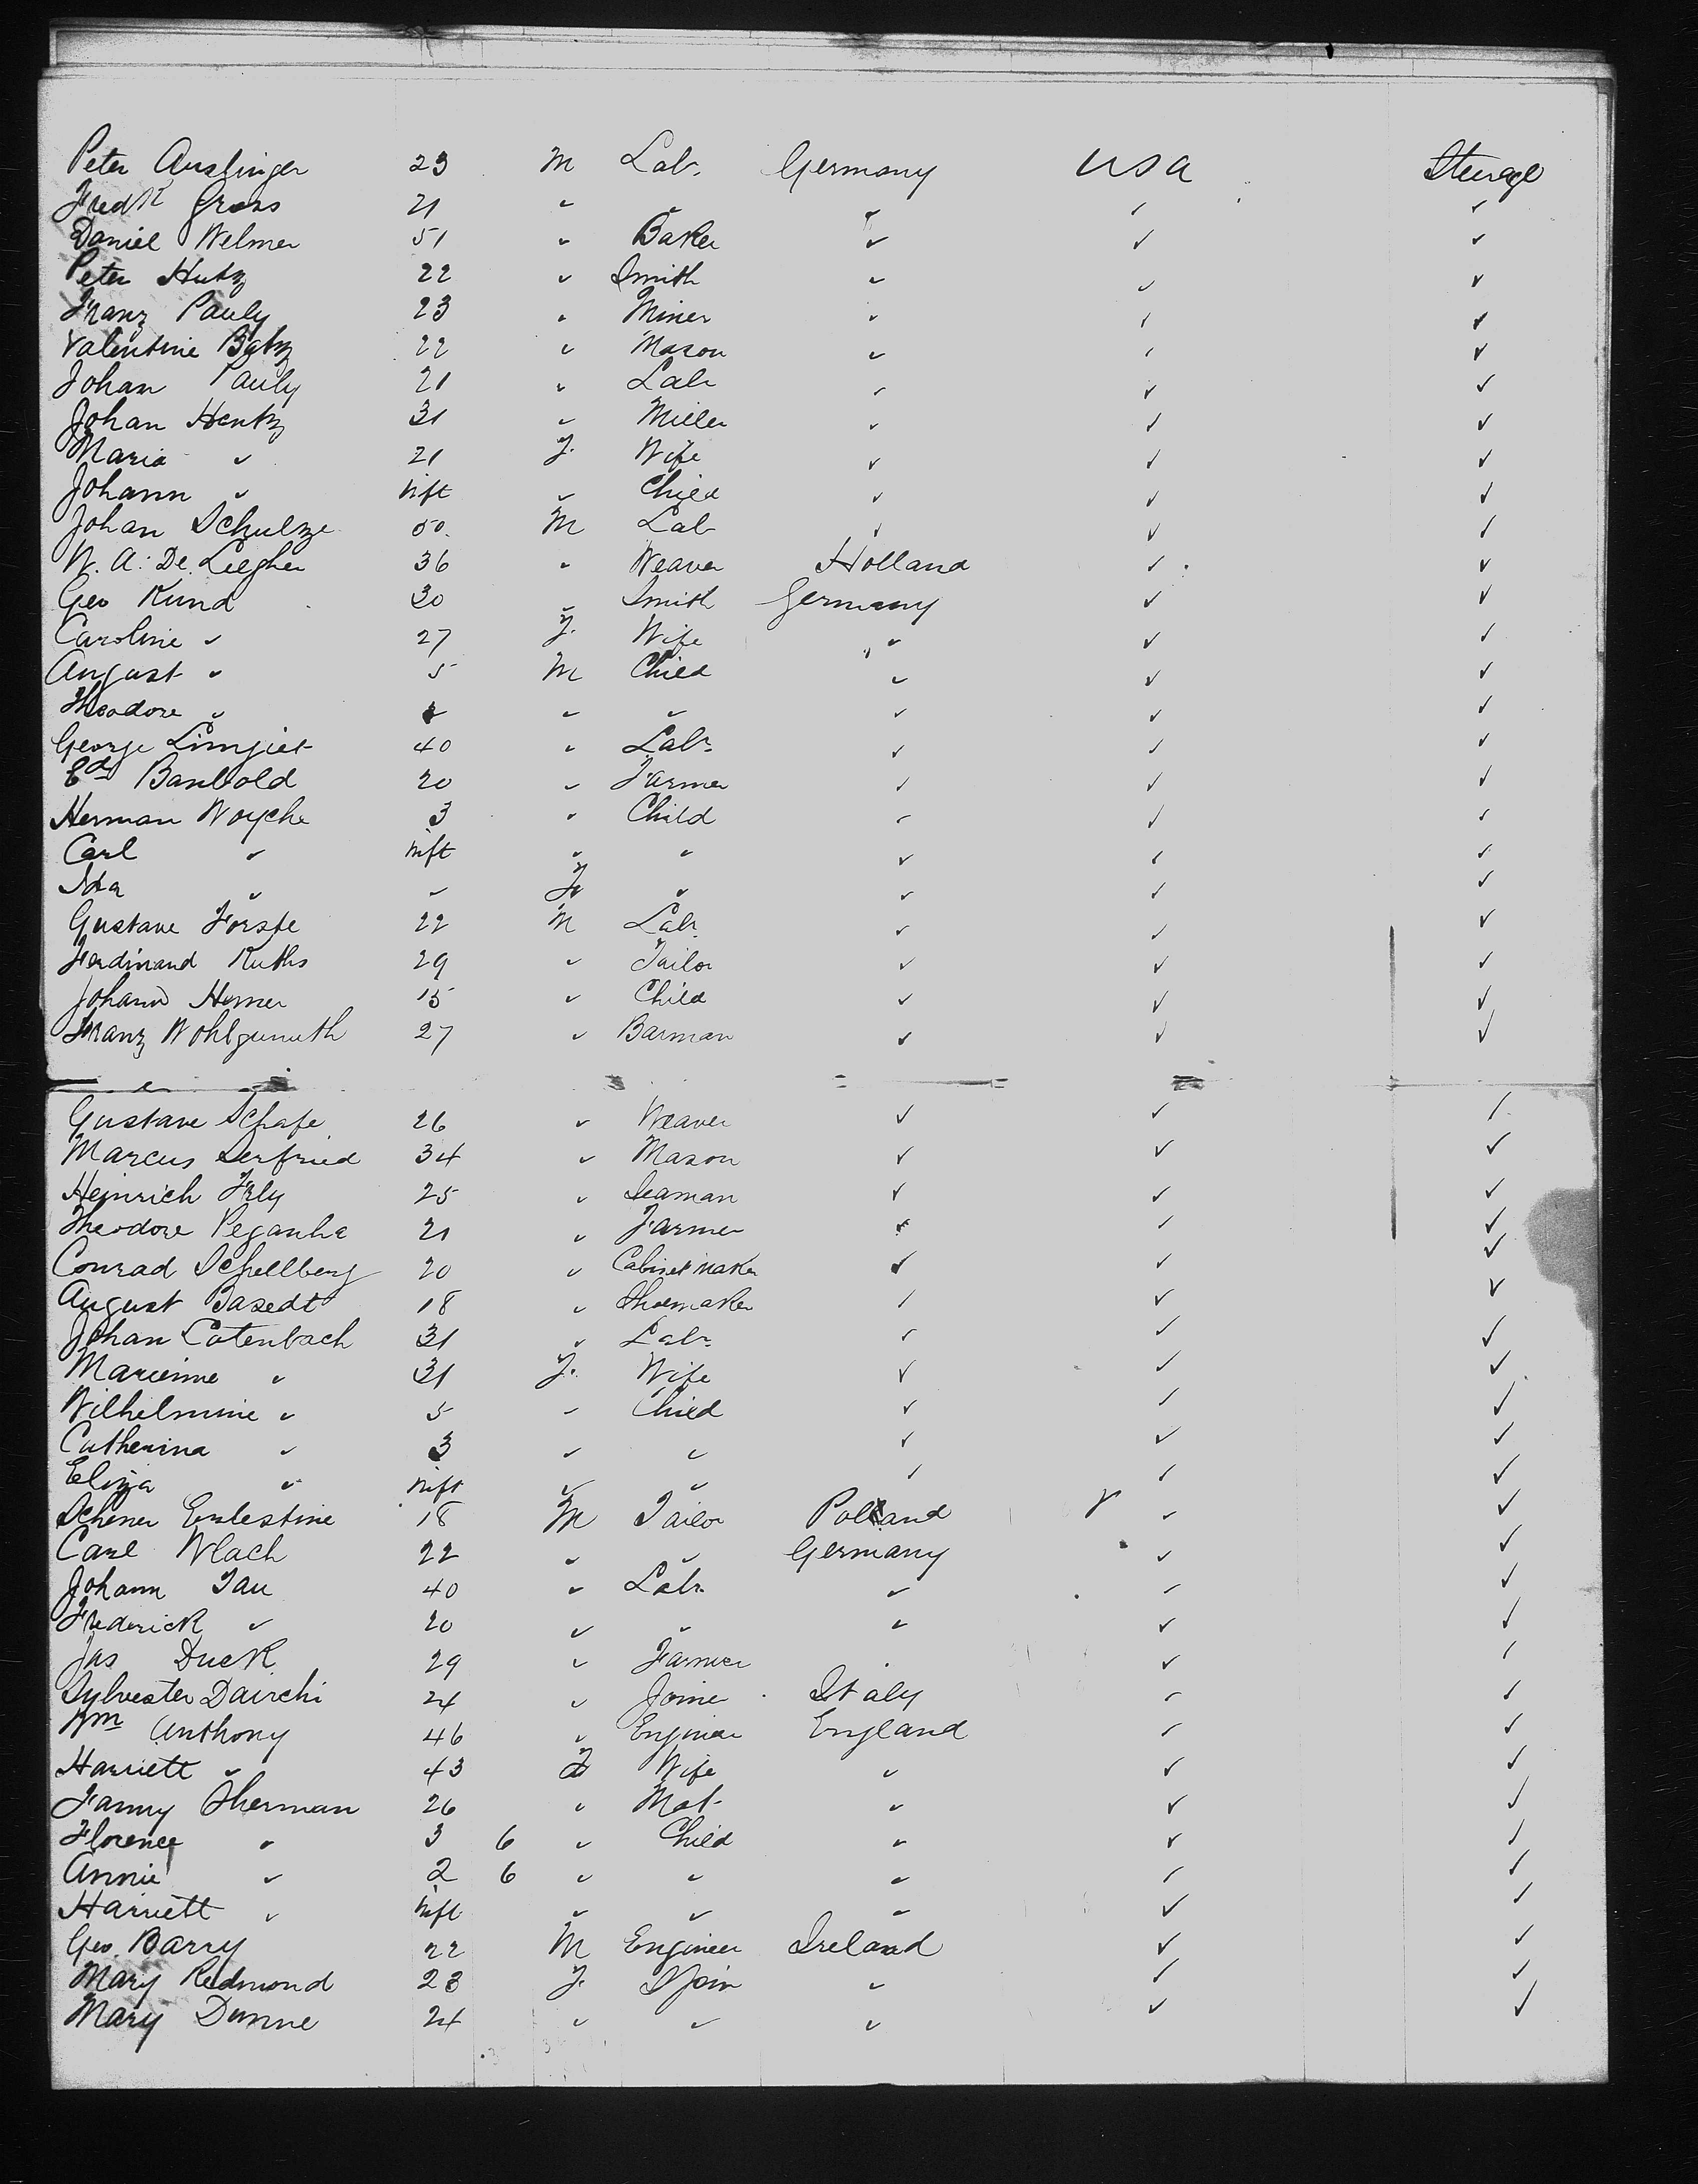 Peter Auslinger 23 M Lab. Germany USA Steerage
Fredk Gross 21 " " " " "
Daniel Welmer 51 " Baker " " "
Peter Hutz 22 " Smith " " "
Franz Pauly 23 " Miner " " "
Valentine Batz 22 " Mason " " "
Johan Pauly 21 " Labr " " "
Johan Hentz 31 " Miller " " "
Maria " 21 F. Wife " " "
Johann " Inft " Child " " "
Johan Schulze 50 M Lab " " "
W. A. De Leegher 36 " Weaver Holland " "
Geo Kund 30 " Smith Germany " "
Caroline " 27 F. Wife " " "
August " 5 M Child " " "
Theodore " " " " " "
George Limjiet 40 " Labr " " "
Ed Banbold 20 " Farmer " " "
Herman Woyche 3 " Child " " "
Carl " Inft " " " " "
Ida " " F " " " "
Gustave Forste 22 M Labr. " " "
Ferdinand Kuths 29 " Tailor " " "
Johann Hemer 15 " Child " " "
Franz Wohlgemuth 27 " Barman " " "
Gustave Schafe 26 " Weaver " " "
Marcus Serfried 34 " Mason " " "
Heinrich Frly 25 " Seaman " " "
Theodore Peganha 21 " Farmer " " "
Conrad Schellberg 20 " Cabinet maker " " "
August Basedt 18 " Shoemaker " " "
Johan Catenbach 31 " Labr. " " "
Marienne " 31 F. Wife " " "
Wilhelmine " 5 " Child " " "
Catherina " 3 " " " " "
Eliza " Inft " " " " "
Schener Ernestine 18 M Tailor Poland " "
Carl Wlach 22 " " Germany " "
Johann Tau 40 " Labr. " " "
Frederick " 20 " " " " "
Jas Duck 29 " Farmer " " "
Sylvester Dairchi 24 " Joiner Italy " "
Wm Anthony 46 " Engineer England " "
Harriett " 43 F Wife " " "
Fanny Sherman 26 " Mat. " " "
Florence " 3 6 " Child " " "
Annie " 2 6 " " " " "
Harriett " Inft " " " " "
Geo. Barry 22 M Engineer Ireland " "
Mary Redmond 23 F. Spin " " "
Mary Dunne 24 " " " " "